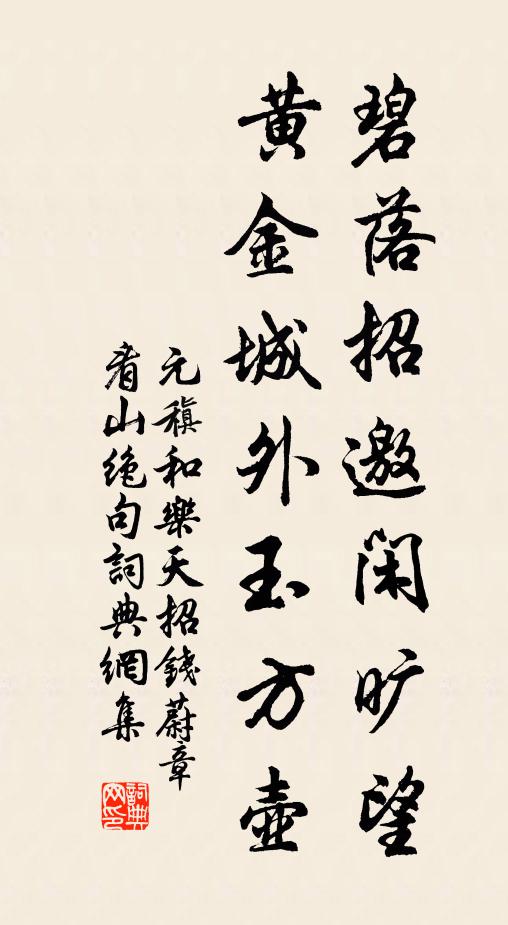 碧落招邀閑曠望
黃金城外玉方壺
元稹和樂天招錢蔚章
看山絶句詞典網集
詞典
网印